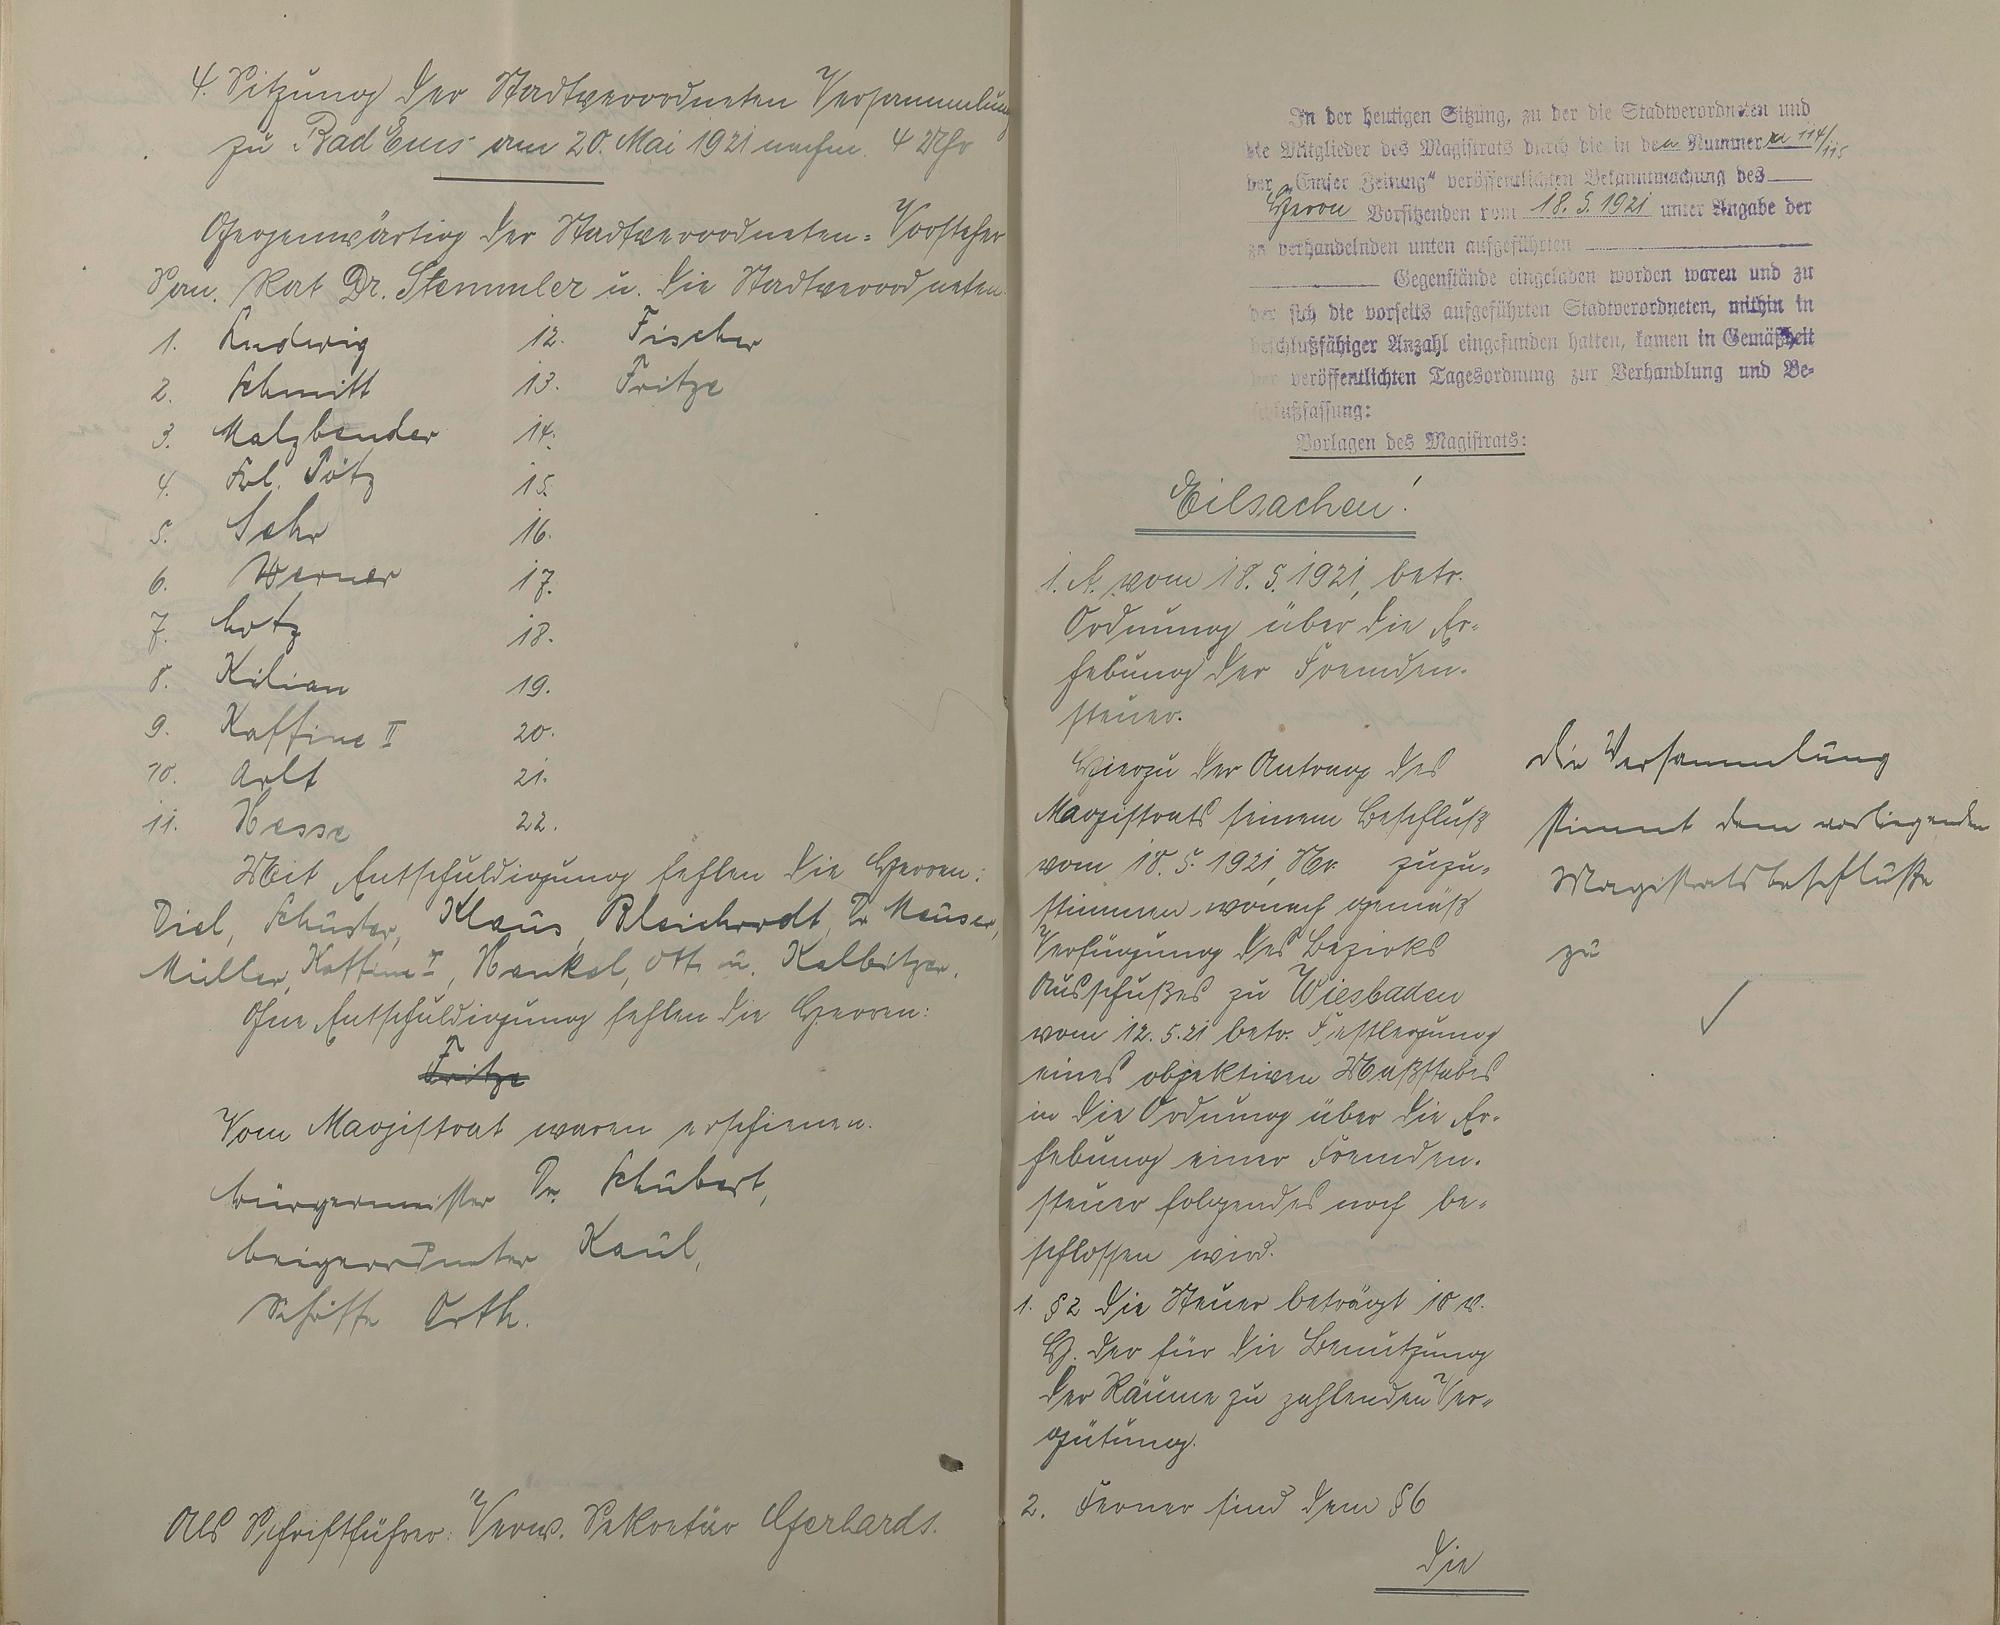 4. Sitzung der Stadtverordneten Versammlung
zu Bad Ems am 20. Mai 1921 nachm. 4 Uhr
Gegenwärtig der Stadtverordneten-Vorsteher
San. Rat Dr. Stemmler u. die Stadtverordneten
1. Ludwig
2. Schmitt
3. Malzbender
4. Frl. Pötz
5. Sehr
6. Werner
7. Lotz
8. Kilian
9. Kaffine II
10. Arlt
11. Hesse
12. Fischer
13. Fritze
14.
15.
16.
17.
18.
19.
20.
21.
22.
Mit Entschuldigung fehlen die Herren:
Diel, Schuster, Klaus, Bleichrodt, Dr. Mauser,
Müller, Kaffine I, Henkel, Ott u. Kalbitzer.
Ohne Entschuldigung fehlen die Herren:
Fritze
Vom Magistrat waren erschienen.
Bürgermeister Dr. Schubert,
Beigeordneter Kaul,
Schöffe Orth.
Als Schriftführer: Verw. Sekretär Gerhards.
In der heutigen Sitzung, zu der die Stadtverordneten und
die Mitglieder des Magistrats durch die in den Nummern 114/115
der „Emser Zeitung“ veröffentlichten Bekanntmachung des
Herrn Vorsitzenden vom 18.5.1921 unter Angabe der
zu verhandelnden unten aufgeführten
Gegenstände eingeladen worden waren und zu
der sich die vorseits aufgeführten Stadtverordneten, mithin in
beschlußfähiger Anzahl eingefunden hatten, kamen in Gemäßheit
der veröffentlichten Tagesordnung zur Verhandlung und Be-
schlußfassung:
Vorlagen des Magistrats:
Eilsachen!
1. A. vom 18.5.1921, betr.
Ordnung über die Er-
hebung der Fremden-
steuer.
Hierzu der Antrag des
Magistrats seinem Beschluß
vom 18.5.1921, Nr. zuzu-
stimmen, wonach gemäß
Verfügung des Bezirks
Ausschußes zu Wiesbaden
vom 12.5.21 betr. Festlegung
eines objektiven Maßstabes
in die Ordnung über die Er-
hebung einer Fremden-
steuer folgendes noch be-
schlossen wird.
1. §2 Die Steuer beträgt 10 v.
H. der für die Benutzung
der Räume zu zahlenden Ver-
gütung.
2. Ferner sind dem §6
die
Die Versammlung
stimmt dem vorliegenden
Magistratsbeschlusse
zu